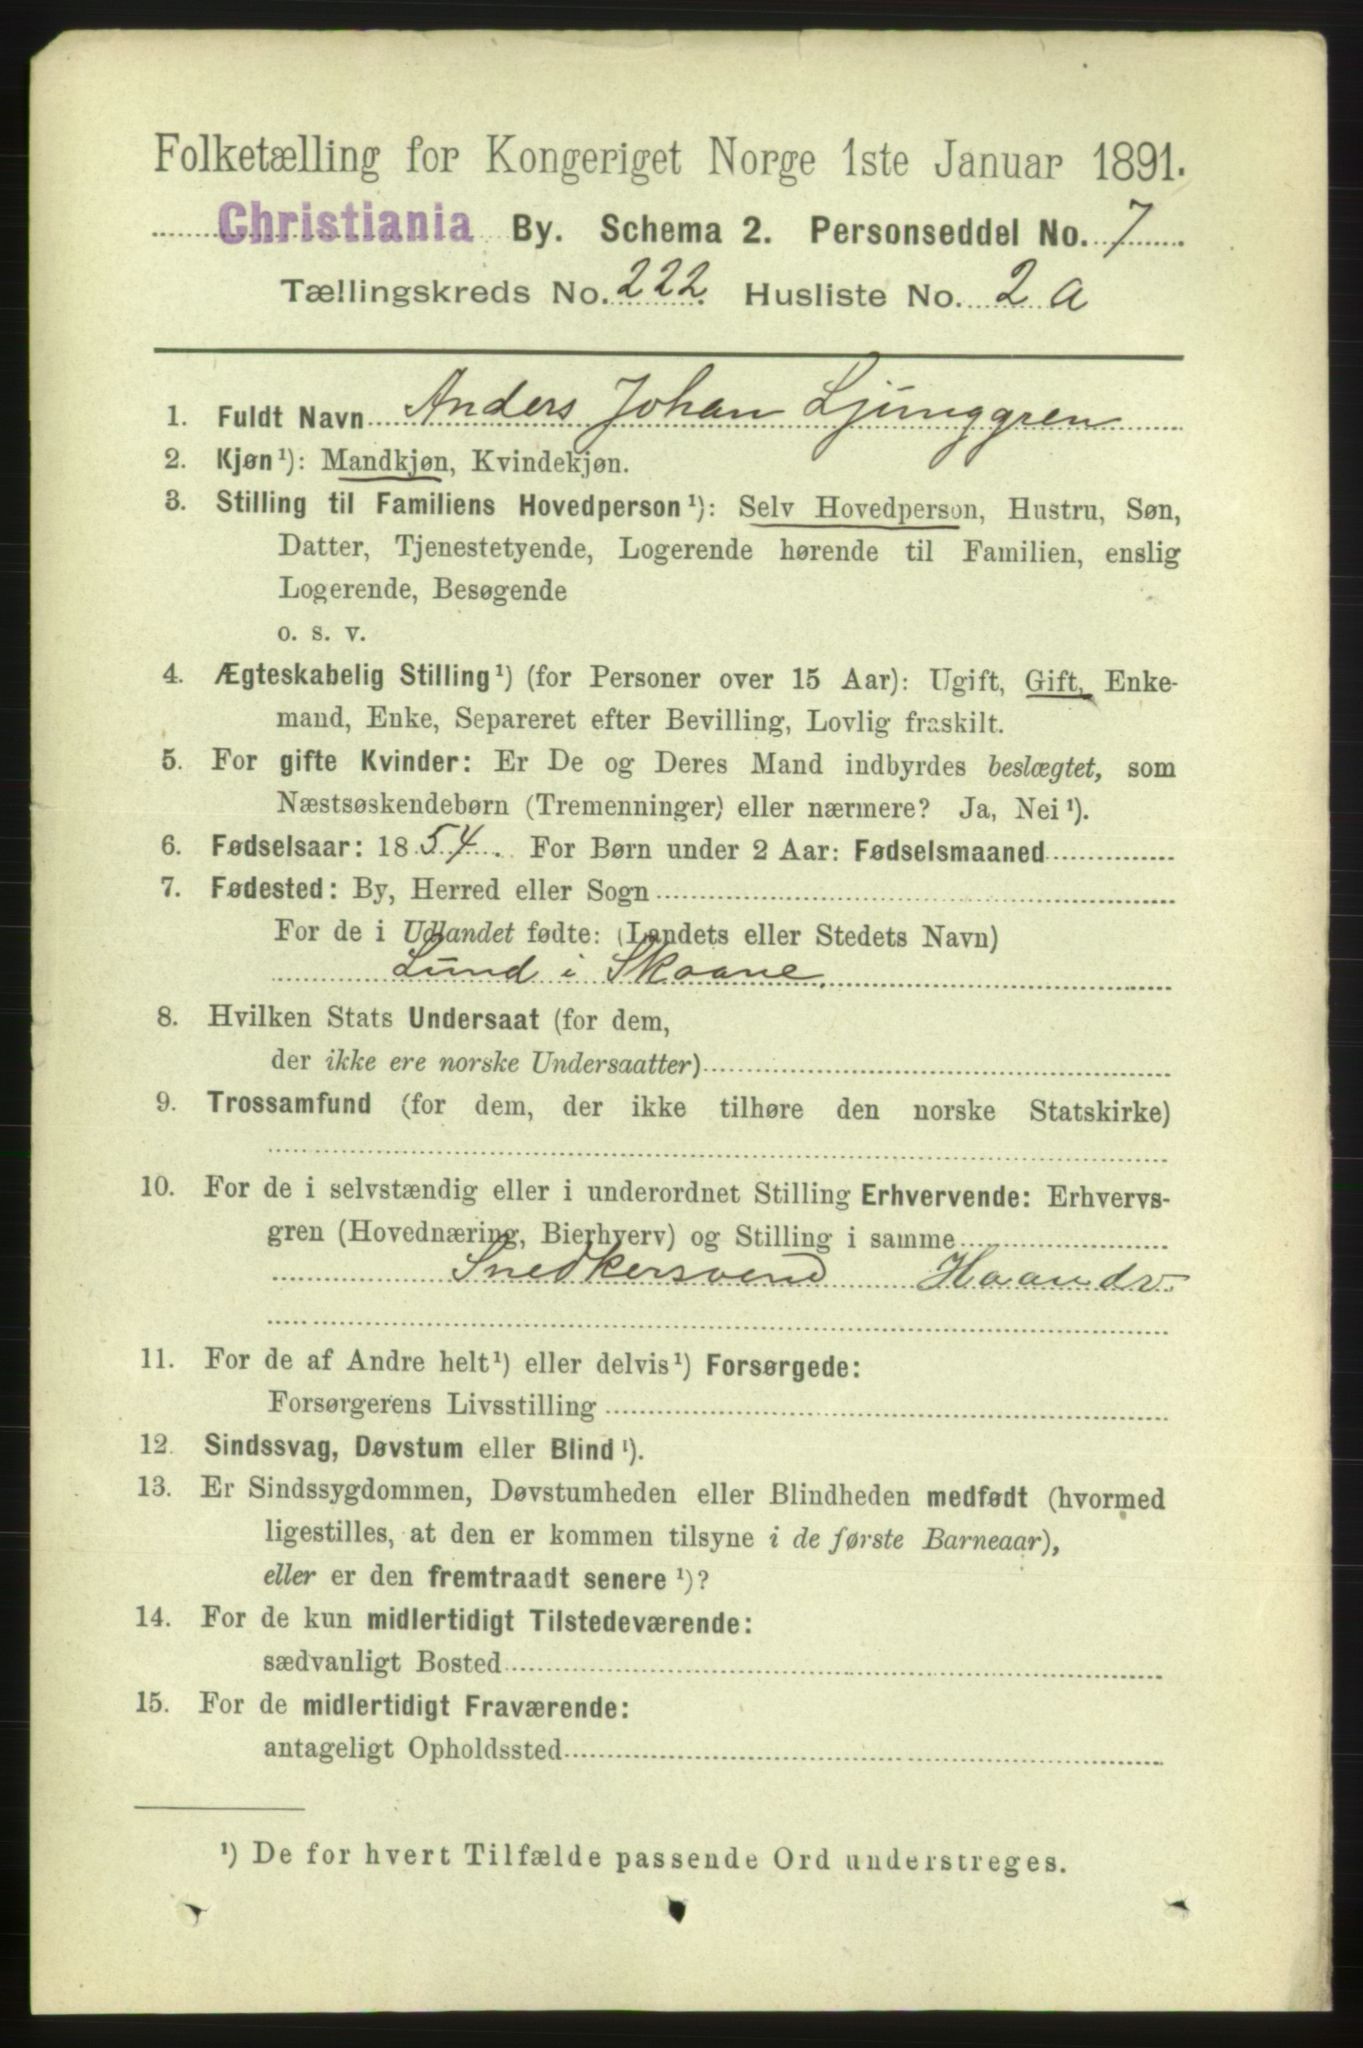 Folketælling for Kongeriget Norge 1ste Januar 1891.
Christiania By. Schema 2. Personseddel No. 7
Tællingskreds No. 222. Husliste No. 2 a
1. Fuldt Navn Anders Johan Ljunggren
2. Kjøn¹): Mandkjøn, Kvindekjøn.
3. Stilling til Familiens Hovedperson¹): Selv Hovedperson, Hustru, Søn,
Datter, Tjenestetyende, Logerende hørende til Familien, enslig
Logerende, Besøgende
o. s. v.
4. Ægteskabelig Stilling¹) (for Personer over 15 Aar): Ugift, Gift, Enke-
mand, Enke, Separeret efter Bevilling, Lovlig fraskilt.
5. For gifte Kvinder: Er De og Deres Mand indbyrdes beslægtet, som
Næstsøskendebørn (Tremenninger) eller nærmere? Ja, Nei¹).
6. Fødselsaar: 1854. For Børn under 2 Aar: Fødselsmaaned
7. Fødested: By, Herred eller Sogn
For de i Udlandet fødte: (Landets eller Stedets Navn)
Lund i Skaane.
8. Hvilken Stats Undersaat (for dem,
der ikke ere norske Undersaatter)
9. Trossamfund (for dem, der ikke tilhøre den norske Statskirke)
10. For de i selvstændig eller i underordnet Stilling Erhvervende: Erhvervs-
gren (Hovednæring, Bierhverv) og Stilling i samme
Snedkersvend Haandv.
11. For de af Andre helt¹) eller delvis¹) Forsørgede:
Forsørgerens Livsstilling
12. Sindssvag, Døvstum eller Blind¹).
13. Er Sindssygdommen, Døvstumheden eller Blindheden medfødt (hvormed
ligestilles, at den er kommen tilsyne i de første Barneaar),
eller er den fremtraadt senere¹)?
14. For de kun midlertidigt Tilstedeværende:
sædvanligt Bosted
15. For de midlertidigt Fraværende:
antageligt Opholdssted
¹) De for hvert Tilfælde passende Ord understreges.